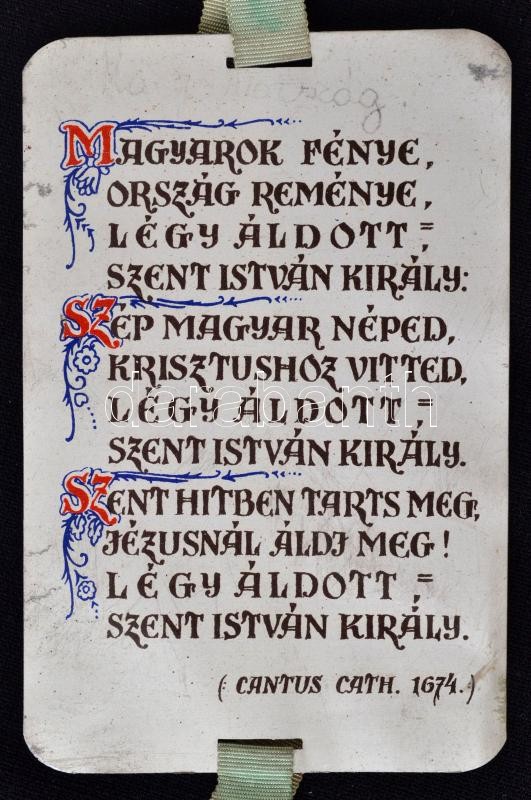 MAGYAROK FÉNYE,
ORSZÁG REMÉNYE,
LÉGY ÁLDOTT,=
SZENT ISTVÁN KIRÁLY:
SZÉP MAGYAR NÉPED,
KRISZTUSHOZ VITTED,
LÉGY ÁLDOTT,=
SZENT ISTVÁN KIRÁLY.
SZENT HITBEN TARTS MEG,
JÉZUSNÁL ÁLDJ MEG!
LÉGY ÁLDOTT,=
SZENT ISTVÁN KIRÁLY.
(CANTUS CATH. 1674.)
darabanth